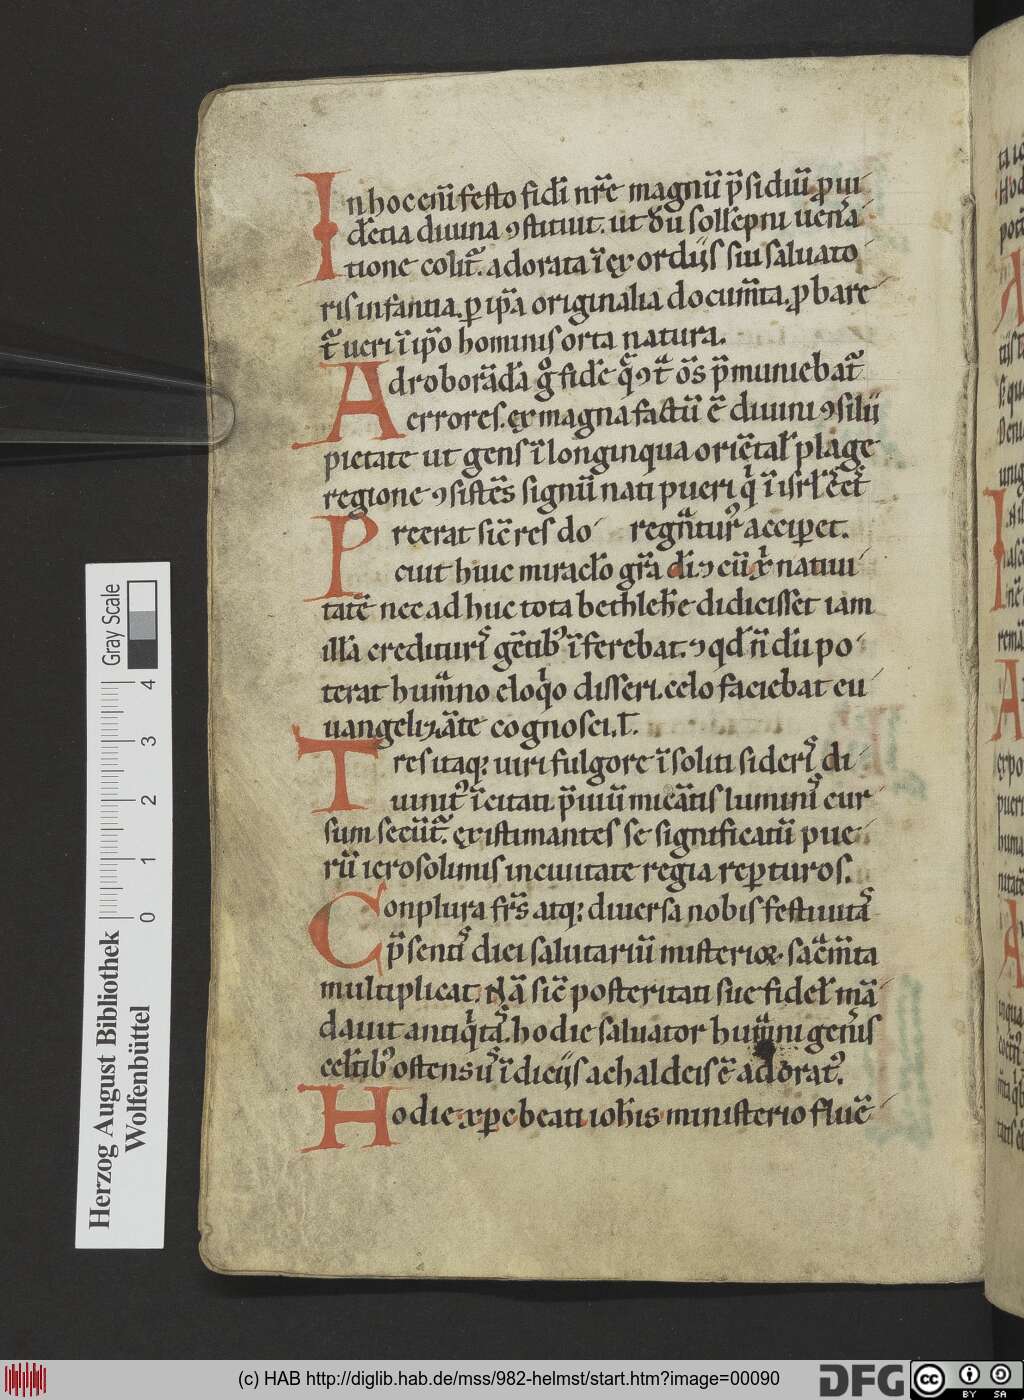 In hoc eni̅ festo fidei nr̅e magnu̅ p̅sidiu̅ ꝓui
de̅tia diuina ꝯstituit. ut du̅ solle̅pni uen̅a
tione colit᷑. adorata i̅ exordiis sui saluato
ris infantia. ꝑ ip̅a originalia docum̅ta. ꝓbare
t᷑ ueri i̅ ip̅o hominis orta natura.
Ad robora̅da g̊ fide̅ q̅ ꝯt̅ o̅s p̅muniebat᷑
errores. ex magna factu̅ e̅ diuini ꝯsilii
pietate ut gens i̅ longinqua orie̅tal̅ plage
regione ꝯsiste̅s signu̅ nati pueri q̇ i̅ isrl̅
Preerat sic̅ res do regnat᷑ acciꝑet.
cuit huic miracl̅o gr̅a di̅ ꝯ cu̅ xp̅i natiui
tate̅ nec adhuc tota bethlehe̅ didicisset iam
illa̅ credituris ge̅tibꝰ i̅ferebat. ꝯ qd̅ n̅du̅ po
terat humano eloq̇o disseri. celo faciebat eu
uangeliza̅te cognosci. T.
Tres itaqꝫ uiri fulgore i̅soliti sideris di
uinitꝰ i̅citati p̅uiu̅ mica̅tis luminis cur
sum secuti. existimantes se significatu̅ pue
ru̅ ierosolimis in ciuitate regia repturos.
Conplura frs̅ atqꝫ diuersa nobis festiuitas
p̅sentis diei salutariu̅ misterioꝝ sac̅m̅ta
multiplicat. Na̅ sic̅ posteritati sue fidel̅ ma̅
dauit antiq̇tas. hodie saluator humani gen̅is
cel̅tibꝰ ostensus i̅diciis a chaldeis e̅ adoratꝰ.
Hodie xp̅c beati ioh̅is ministerio flue̅
Herzog August Bibliothek
Wolfenbüttel
0 1 2 3 4
Gray Scale
(c) HAB http://diglib.hab.de/mss/982-helmst/start.htm?image=00090
DFG
cc BY SA